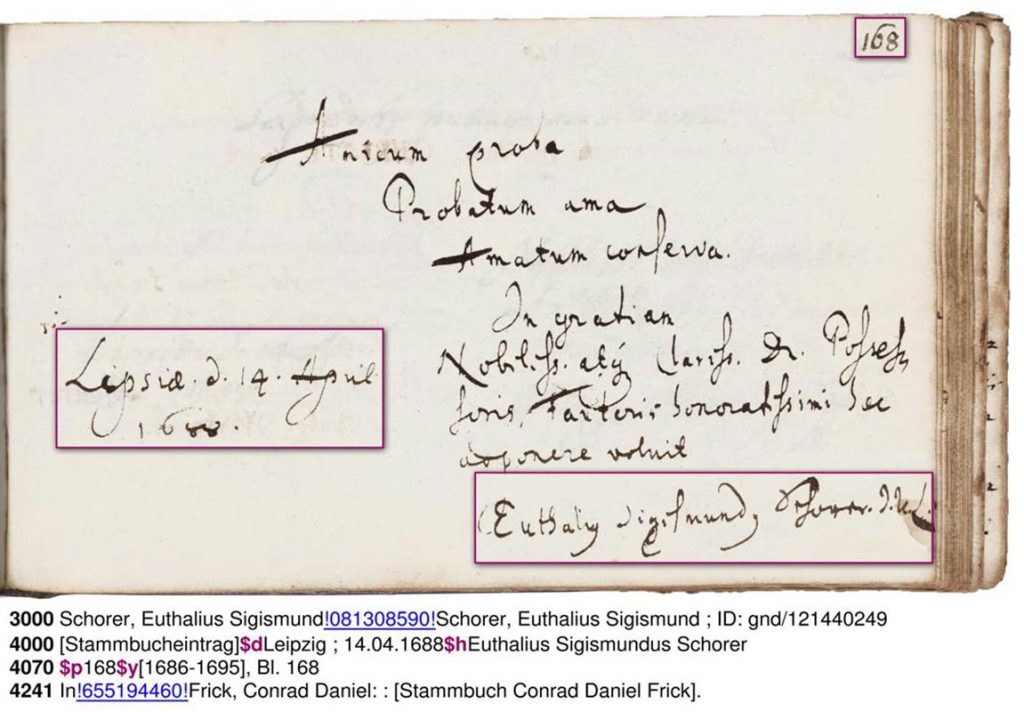 168
Amicum proba
Probatum ama
Amatum conserva.
In gratiam
Nobiliss. atq; Clariss. Dn. Posses,
soris, Fautoris honoratissimi hec
apponere voluit
Lipsiæ. d. 14. April
1688
Euthaliq Sigismundq Schorer. J.U.L.
3000 Schorer, Euthalius Sigismund!081308590!Schorer, Euthalius Sigismund ; ID: gnd/121440249
4000 [Stammbucheintrag]$dLeipzig ; 14.04.1688$hEuthalius Sigismundus Schorer
4070 $p168$y[1686-1695], Bl. 168
4241 In!655194460!Frick, Conrad Daniel: : [Stammbuch Conrad Daniel Frick].